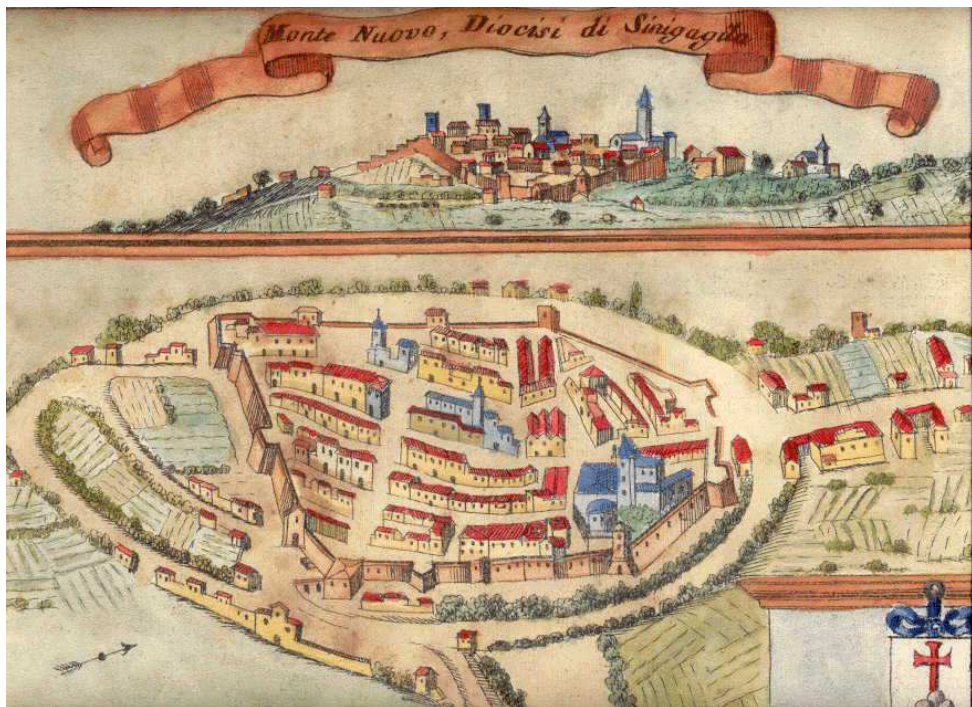 Monte Nuovo, Diocisi di Sinigaglia